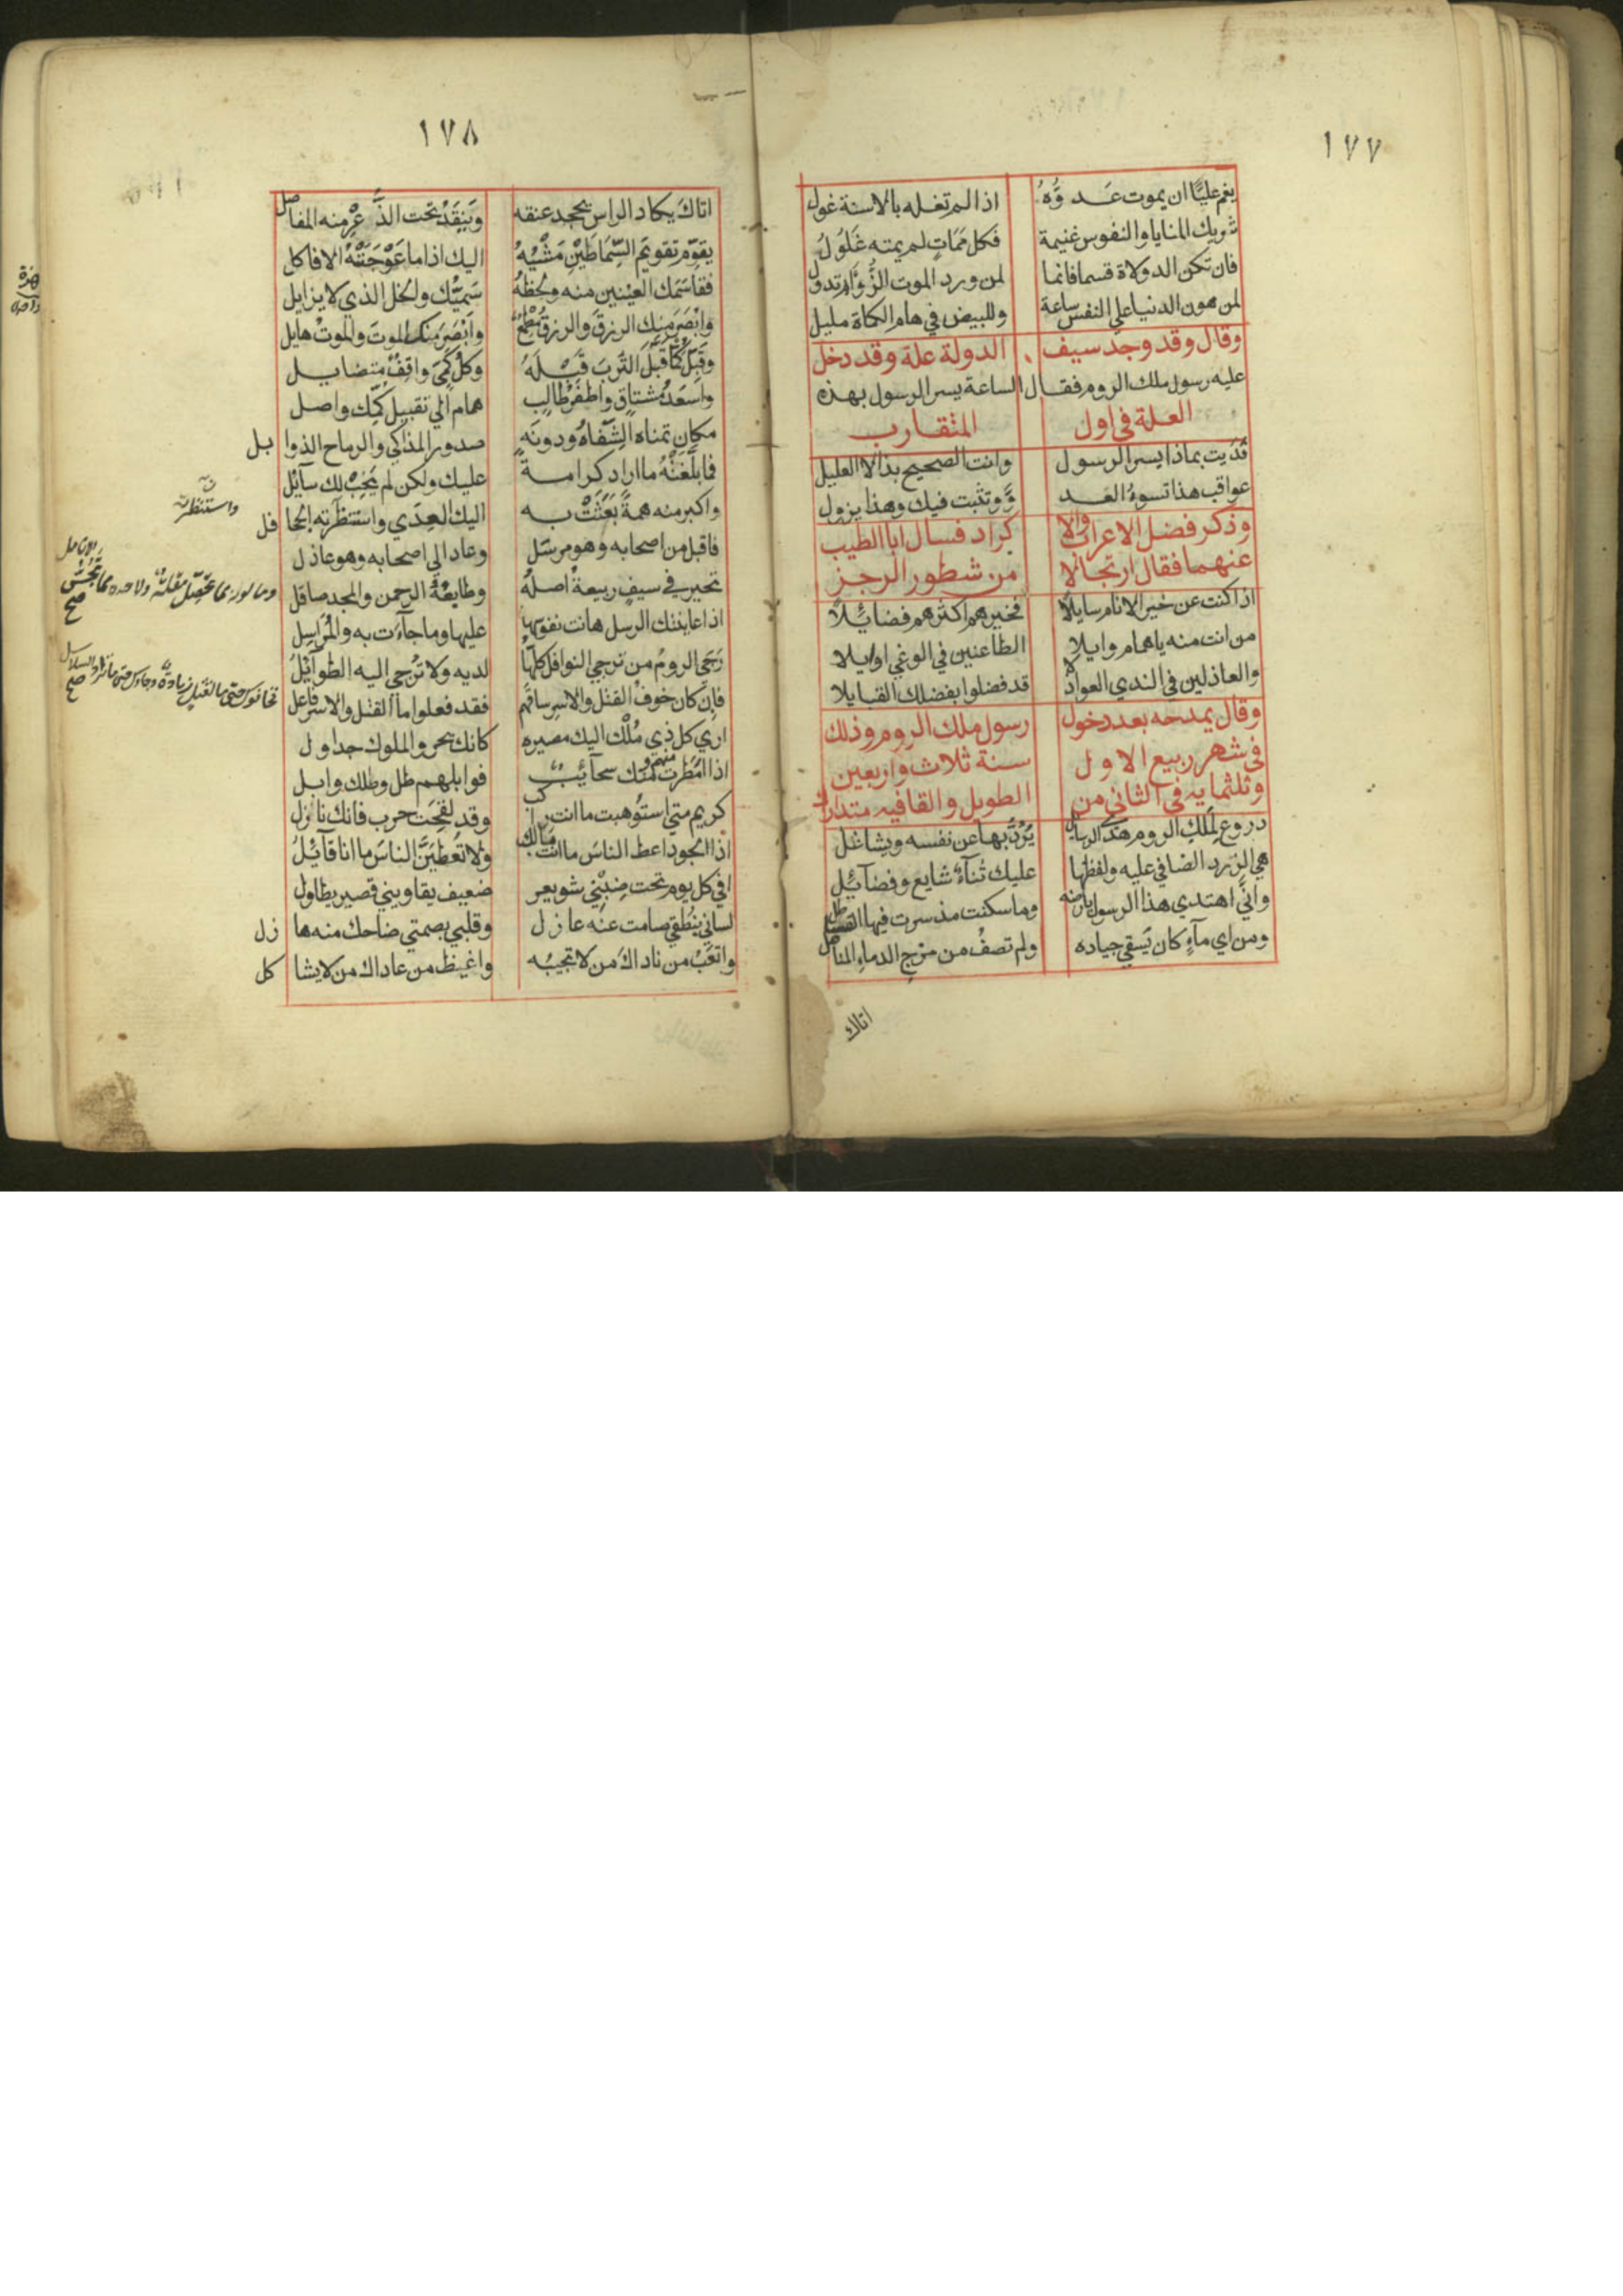 ١٧٧
يغم عليّا ان يموت عَدوُّهُ اذا لم تغله بالاسنة غول
شريك المنايا والنفوس غنيمة فكل مَمَاتٍ لم يمته غَلُولُ
فان تكن الدولاة قسما فانما لمن ورد الموت الزُّؤَام تدول
لمن هون الدنيا علي النفس ساعة وللبيض في هام الكماة صليل
وقال وقد وجد سيف الدولة علة وقد دخل
عليه رسول ملك الروم فقال الساعة يسر الرسول بهذه
العلة في اول المتقارب
فُدَيت بماذا يسر الرسول وانت الصحيح بذا لا العليل
عواقب هذا تسوءُ العد وَّ وتثبت فيك وهذا يزول
وذكر فضل الاعراب والا كراد فسال ابا الطيب
عنهما فقال ارتجالا من شطور الرجز
اذا كنت عن خير الانام سايلاً فخيرهم اكثرهم فضائلاً
من انت منه يا همام وايلا الطاعنين في الوغي اوايلا
والعاذلين في الندي العواذلا قد فضلوا بفضلك القبايلا
وقال يمدحه بعد دخول رسول ملك الروم وذلك
في شهر ربيع الاول سنة ثلاث واربعين
وثلثمايه في الثاني من الطويل والقافيه متدارك
دروع لِمَلْكِ الروم هذي الرسايل يَرُدُّ بها عن نفسه ويشاغل
هي الزرد الضافي عليه ولفظها عليك ثناءٌ شايع وفضآئل
وانَّي اهتدي هذا الرسول بارضه وما سكنت مذ سرت فيها القساطل
ومن اي مآءٍ كان يَسقي جياده ولم تصفُ من مزج الدماءِ المناهل
اتاك
١٧٨
اتاكَ يكاد الراس يجحد عنقه وَيَنقَدُّ تحت الذُّعْرِ منه المفاصل
يقوّم تقويمَ السِّمَاطَيْنِ مَشْيُهُ اليك اذا ما عَوَّجَتْهُ الافاكل
فقاسَمَك العينين منه ولحظهُ سَمِيُّك والخل الذي لا يزايل
وابْصَرَ منك الرزقَ والرزقُ مُطْمِعٌ وابْصَرَ منك الموتَ والموتُ هايل
وقَبَّلَ كُمّاً قَبَّلَ التُربَ قَبْلَهُ وكلُّ كَمِيٍّ واقِفٌ متضايل
واسعَدُ مشتاق واظفَرُ طالبٍ همام الي تقبيل كمّك واصل
مكان تمناه الشّفَاهُ ودونَه صدور المذاكي والرماح الذوابل
فما بلَّغَتْهُ ما اراد كرامةً عليك ولكن لم يَخِبْ لك سآئلُ
واكبر منه همةً بَعَثَتْ به اليك العِدَي واستنظَرَته الجحافل
واستنظرت
فاقبل من اصحابه وهو مرسَل وعاد الي اصحابه وهو عاذل
تحير في سيفٍ ربيعةُ اصلهُ وطابعُهُ الرحمن والمجد صاقل
وما لونه مما تُحَصِّلُ مُقلةٌ ولا حده مما تَجُسُّ الانامل صح
اذا عاينتك الرسل هانت نفوسها عليها وما جآءَت به والمُرَاسِل
رَجَي الرومُ من تُرجي النوافل كلُّها لديه ولا تُرجي اليه الطوآئلُ
فاِن كان خوفُ القتل والاسر ساقهم فقد فعلوا ما القتل والاسر فاعل
فخافوك حتى ما لقتلٍ زيادةٌ وجاؤك حتى ما تزاد السلاسل صح
اري كل ذي مُلْكٍ اليك مصيره كانك بحر والملوك جداول
اذا امْطَرت منهم ومنك سحآئبٌ فوابلهم طل وطلك وابل
كريم متي استُوهبت ما انت راكب وقد لقِحَت حرب فانك نازل
اذا الجود اعط الناسَ ما انت مالك ولا تُعْطِيَنَّ الناسَ ما انا قآئلُ
افي كل يوم تحت ضِبْنِي شويعر ضعيف يقاويني قصير يطاول
لساني بنُطقي صامت عنه عازل وقلبي بصمتي ضاحك منه هازل
واتعَبُ من ناداكَ من لا تجيبُه واغيظ من عاداك من لا يشاكل